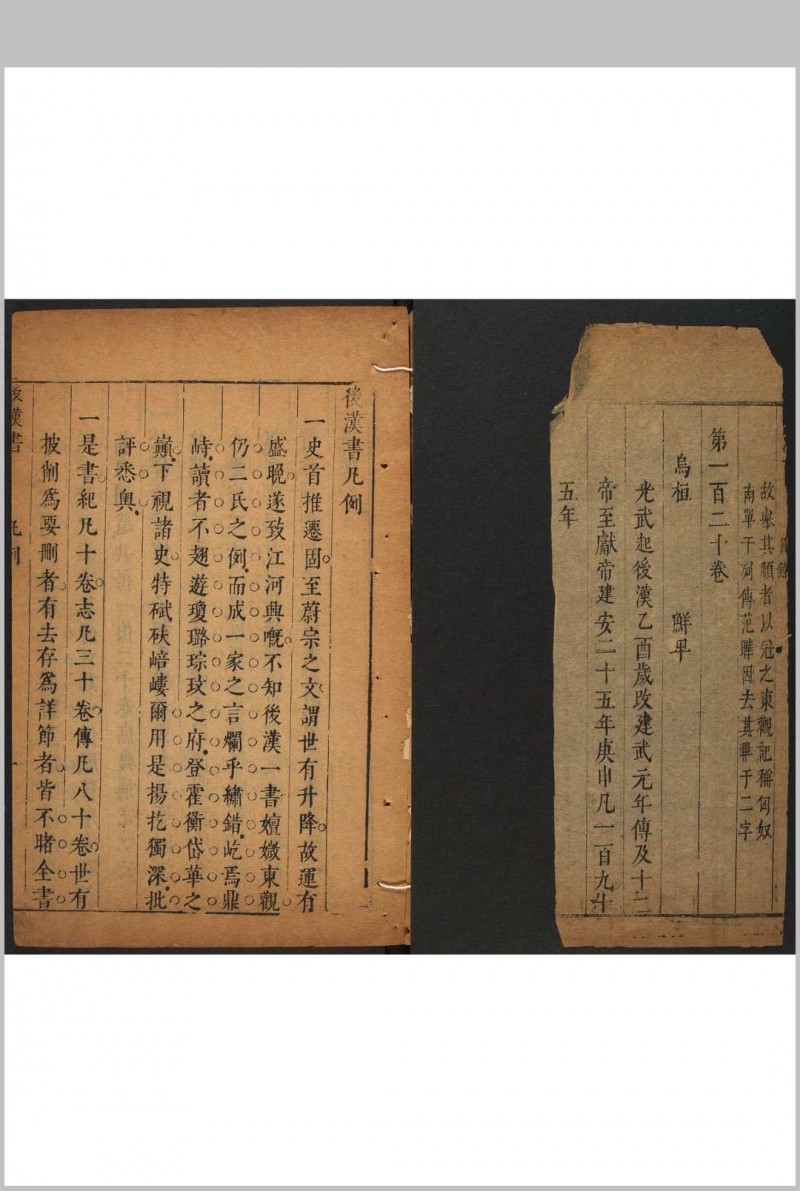 故舉其類者以冠之東觀記稱匈奴
南單于列傳范曄因去其單于二字
第一百二十卷
烏桓 鮮卑
光武起後漢乙酉歲改建武元年傳及十二
帝至獻帝建安二十五年庚申凡一百九十
五年
後漢書凡例
一史首推遷固至蔚宗之文謂世有升降故運有
盛晚遂致江河興慨不知後漢一書嬗媺東觀
仍二氏之例而成一家之言爛乎繡錯屹焉鼎
峙讀者不翅遊瓊璐琮玟之府登霍衡岱華之
巔下視諸史特碔砆嵣嶁爾用是揚扢獨深批
評悉輿
一是書紀凡十卷志凡三十卷傳凡八十卷世有
披削為要刪者有去存為詳節者皆不睹全書
後漢書 凡例 一